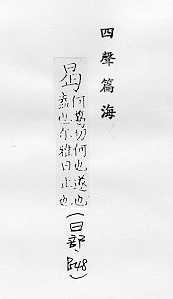 四聲篇海
曷
何葛切何也 也
盍也尔雅曰止也
(曰部, 48)